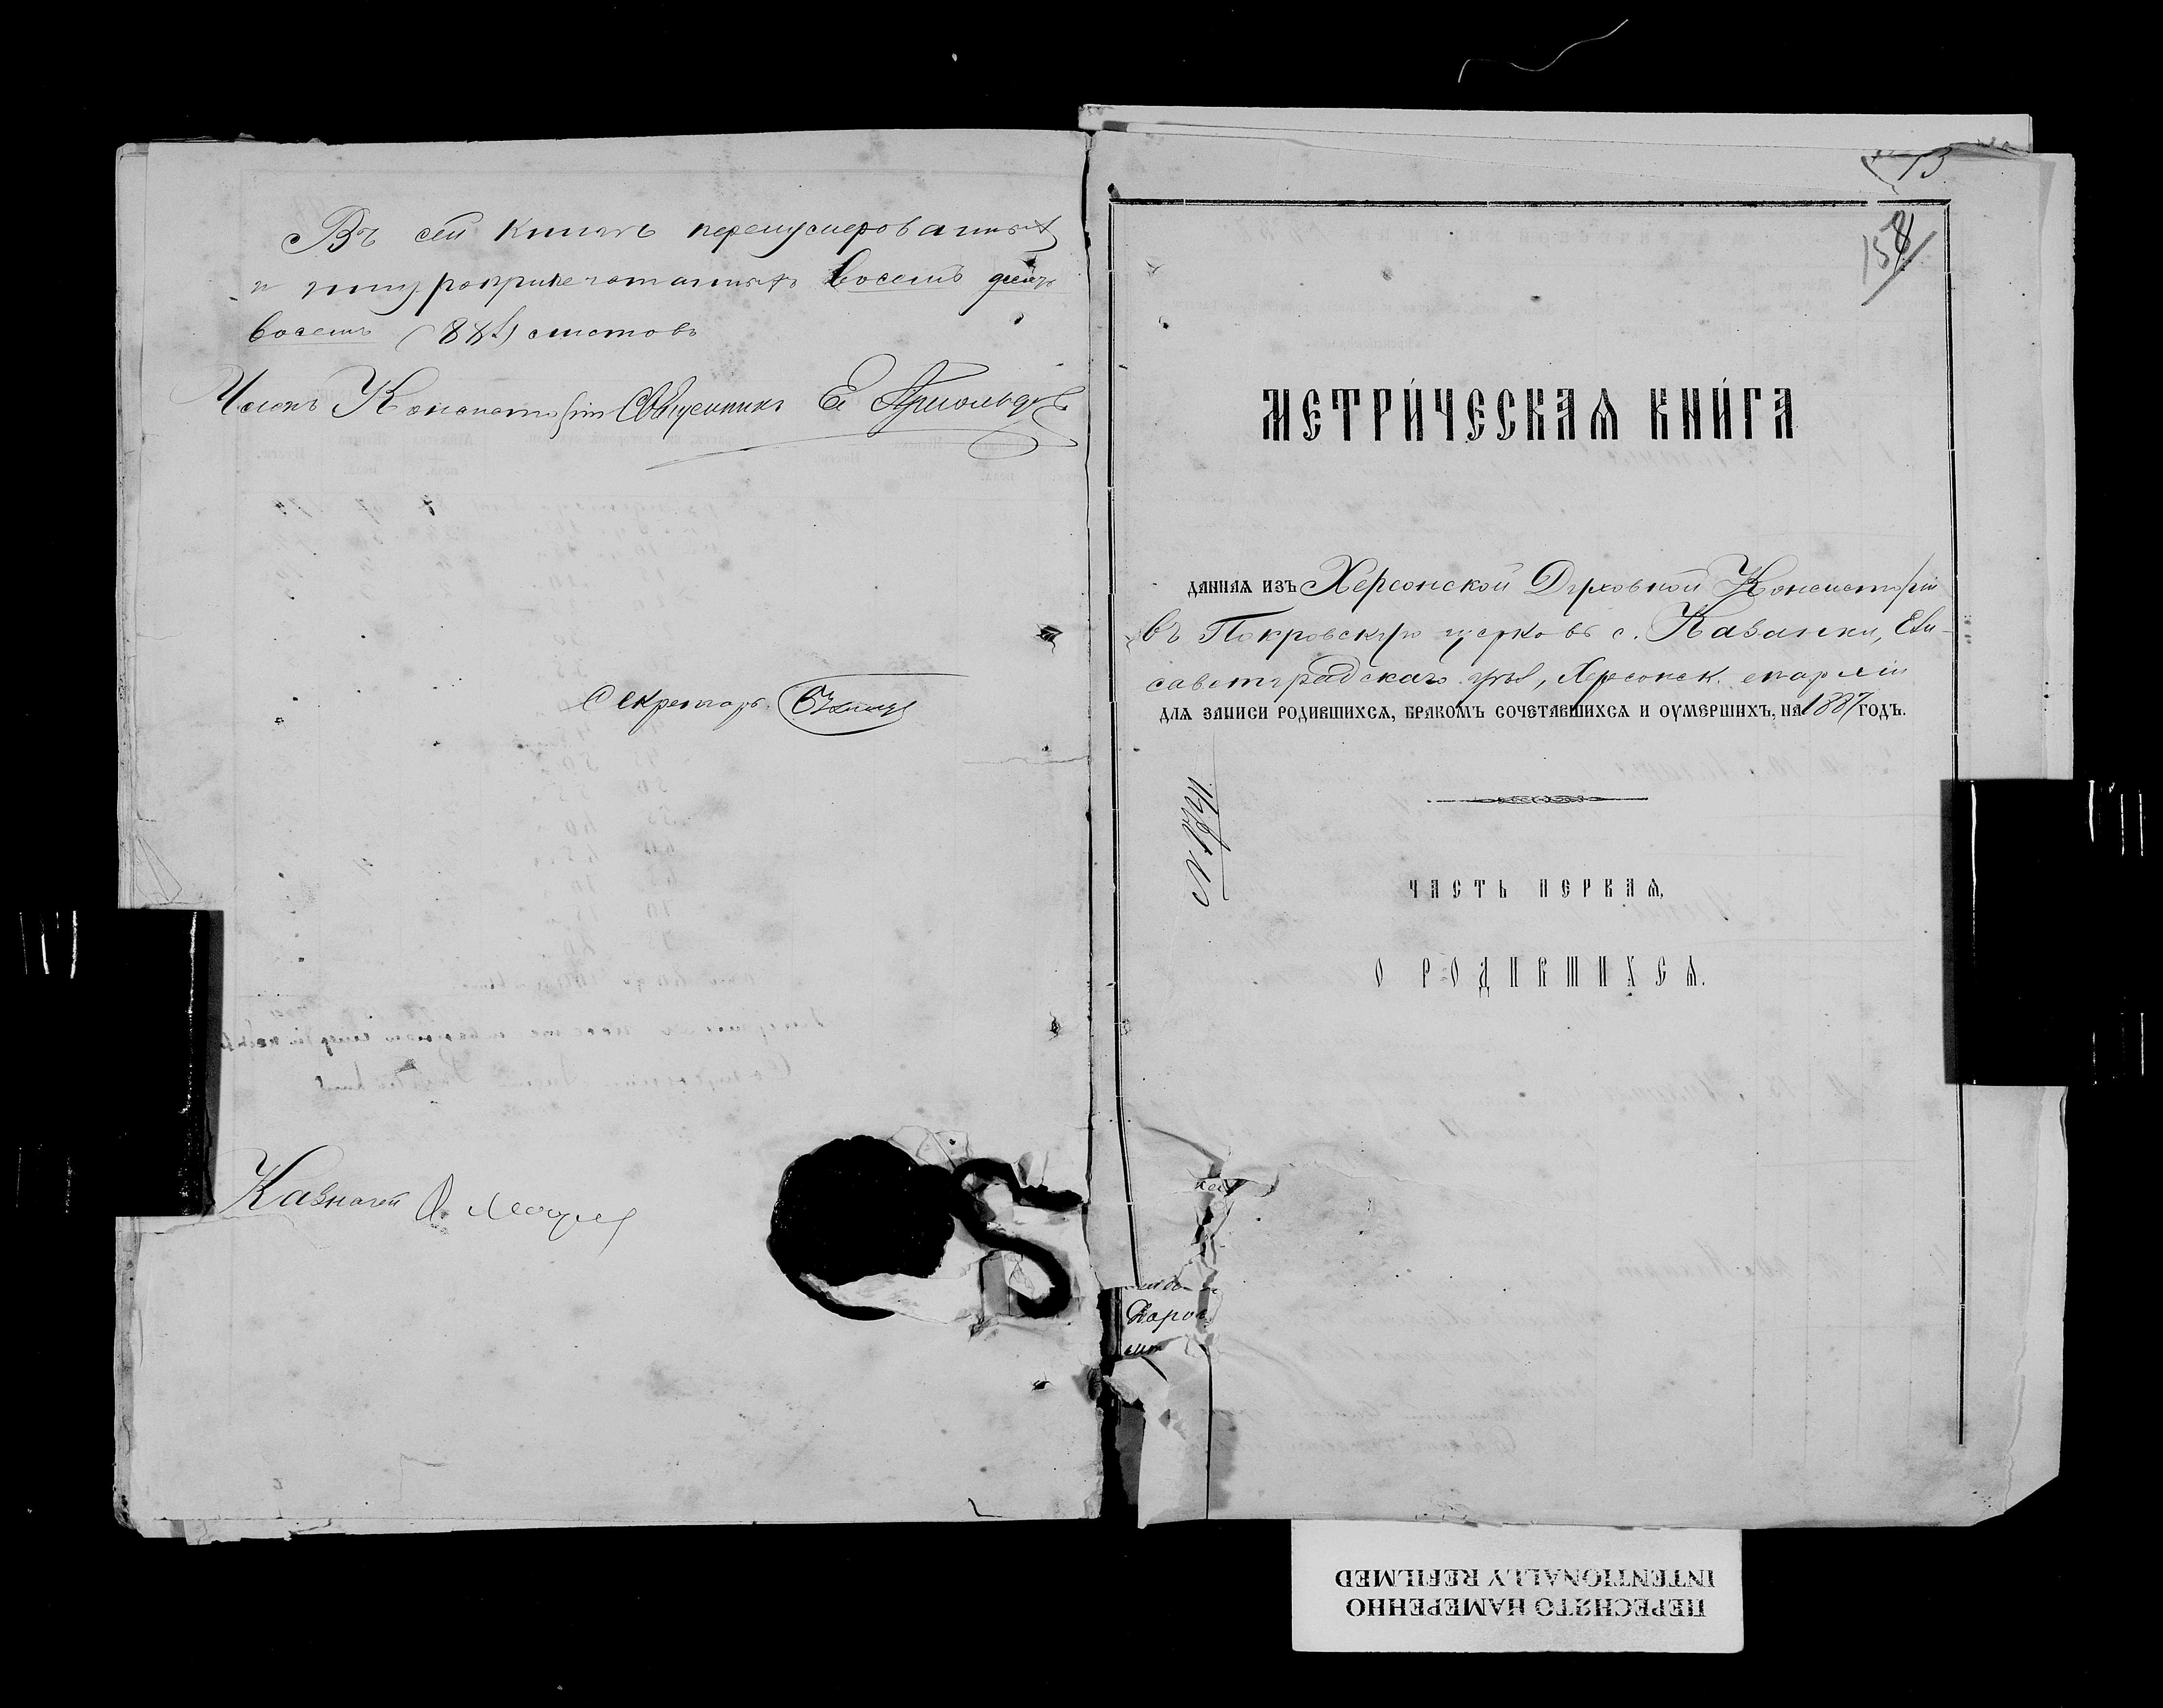 Въ сей книгѣ перенумерованныхъ
и шнуроприпечатанныхъ восемь десятъ
восемь (88) листовъ
Членъ Консисторіи Священникъ Е Арнольдовъ
Секретарь
Казначей
158
МЕТРИ́ЧЕСКАѦ КНИ́ГА
ДАННАѦ ИЗЪ Херсонской Духовной Консисторіи
въ Покровскую церковь с. Казанки, Ели-
саветградскаго уѣз., Херсонск. епархіи
ДЛѦ ЗАПИСИ РОДИВШИХСѦ, БРАКОМЪ СОЧЕТАВШИХСѦ И ОУМЕРШИХЪ, НА 1887 ГОДЪ.
ЧАСТЬ ПЕРВАѦ,
О РОДИВШИХСѦ.
ПЕРЕСНЯТО НАМЕРЕННО
INTENTIONALLY REFILMED